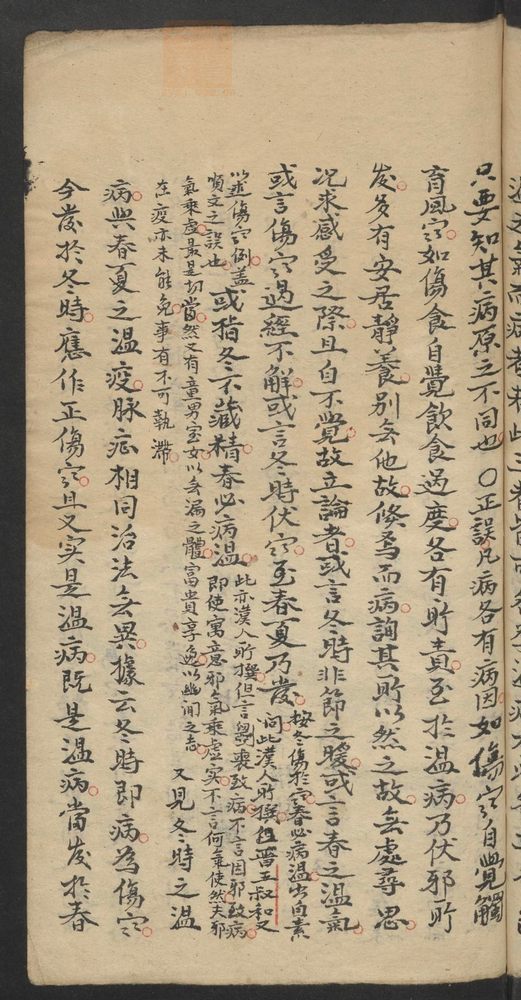 只要知其病原之不同也〇正誤凡病各有病因如傷寒自覺觸
育風寒如傷食自覺飲食過度各有所責至於温病乃伏邪所
发多有安居靜養別無他故倏焉而病詢其所以然之故無處尋思
况求感受之際且自不覺故立論者或言冬時非節之暖或言春之温氣
或言傷寒過經不解或言冬時伏寒至春夏乃發
按冬傷於寒春必病温出自素
問此漢人所撰但晉王叔和又
以述傷寒例蓋
順文之誤也
或指冬不藏精春必病温
此亦漢人所撰但言斵喪致病不言因邪致病
即使寓意邪氣乘虛實不言何氣使然夫邪
氣乘虛最是切當然又有童男室女以無漏之體富貴享逸以幽閒之志
在疫亦未能免事有不可執滯
又見冬時之温
病與春夏之温疫脉症相同治法無異據云冬時即病為傷寒
今發於冬時應作正傷寒且又実是温病既是温病當发於春